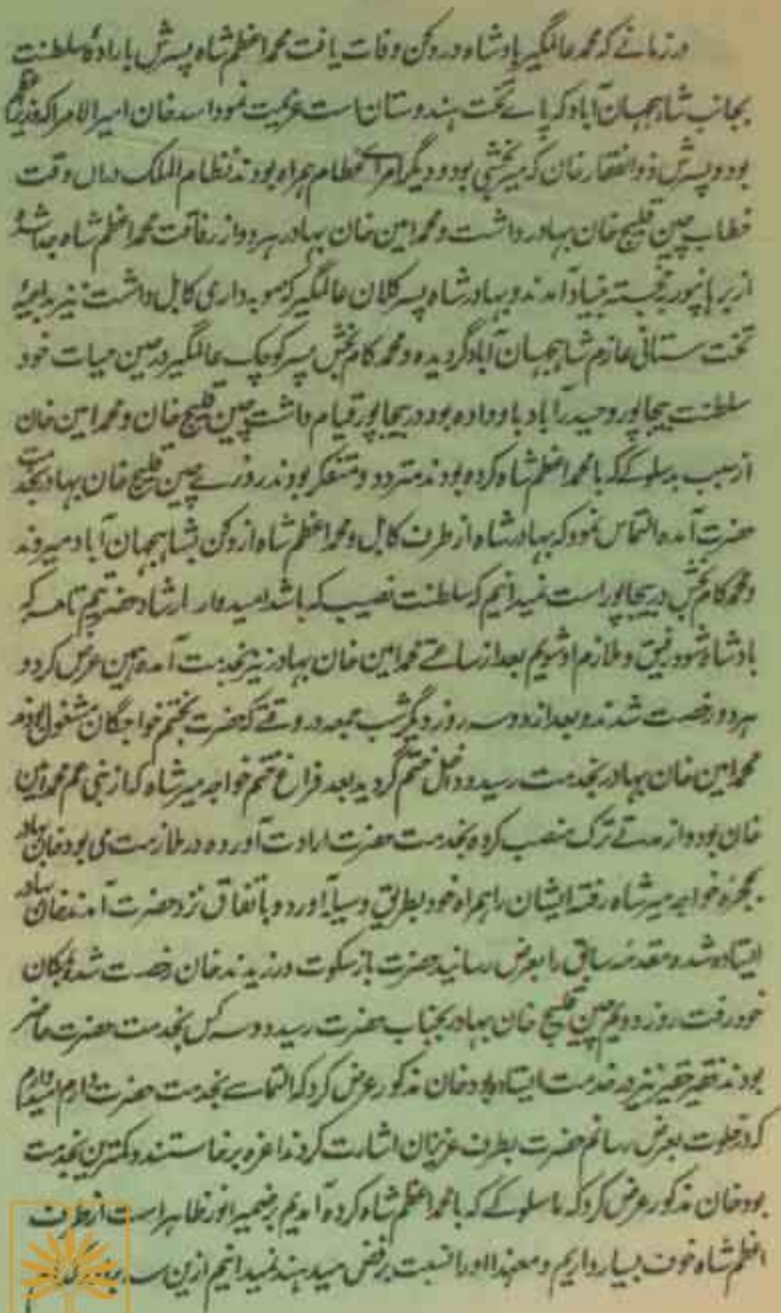 در زمانے که محمد عالمگیر بادشاه در دکن وفات یافت محمد اعظم شاه پسرش باراده سلطنت
بجانب شاهجهان آباد که پاے تخت هندوستان است عزیمت نمود اسد خان امیر الامرا که وزیر اعظم
بود و پسرش ذوالفقار خان که میر بخشی بود و دیگر امراے عظام همراه بودند نظام الملک دران وقت
خطاب چین قلیچ خان بهادر داشت و محمد امین خان بهادر هر دو از رفاقت محمد اعظم شاه جدا شده
از برهانپور بخجسته بنیاد آمدند و بهادر شاه پسر کلان عالمگیر که صوبه داری کابل داشت نیز بداعیه
تخت ستانی عازم شاهجهان آباد گردیده و محمد کام بخش پسر کوچک عالمگیر در عین حیات خود
سلطنت بیجاپور و حیدرآباد باو داده بود در بیجاپور قیام داشت چین قلیچ خان و محمد امین خان
از سبب بدسلوکے که با محمد اعظم شاه کرده بودند متردد و متفکر بودند روزے چین قلیچ خان بهادر بخدمت
حضرت آمده التماس نمود که بهادر شاه از طرف کابل و محمد اعظم شاه از دکن بشاهجهان آباد میروند
و محمد کام بخش در بیجاپور است نمیدانیم که سلطنت نصیب که باشد امیدوار ارشاد حضرتیم تا هر که
بادشاه شود رفیق و ملازم او شویم بعد از ساعتے محمد امین خان بهادر نیز بخدمت آمده همین عرض کرد و
هر دو رخصت شدند و بعد از دو سه روز دیگر شب جمعه در وقتے که حضرت بختم خواجگان مشغول بودند
محمد امین خان بهادر بخدمت رسید و داخل ختم گردید بعد فراغ ختم خواجه میر شاه که از بنی عم محمد امین
خان بود و از مدتے ترک منصب کرده بخدمت حضرت ارادت آورده در ملازمت می بود خان بهادر
بحجره خواجه میر شاه رفته ایشان را همراه خود بطریق وسیله آورد و باتفاق نزد حضرت آمدند خان بهادر
ایستاده شده مقدمه سابق را بعرض رسانید حضرت باز سکوت ورزیدند خان رخصت شده بمکان
خود رفت روز دویم چین قلیچ خان بهادر بجناب حضرت رسید دو سه کس بخدمت حضرت حاضر
بودند فقیر حقیر نیز در خدمت ایستاده بود خان مذکور عرض کرد که التماسے بخدمت حضرت دارم امیدوارم
که در خلوت بعرض رسانم حضرت بطرف عزیزان اشارت کردند اعزه برخاستند و کمترین بخدمت
بود خان مذکور عرض کرد که ما سلوکے که با محمد اعظم شاه کرده آمدیم بر ضمیر انور ظاهر است از طرف
اعظم شاه خوف بسیار داریم و معهذا او را نسبت برفض میدهند نمیدانیم ازین سه